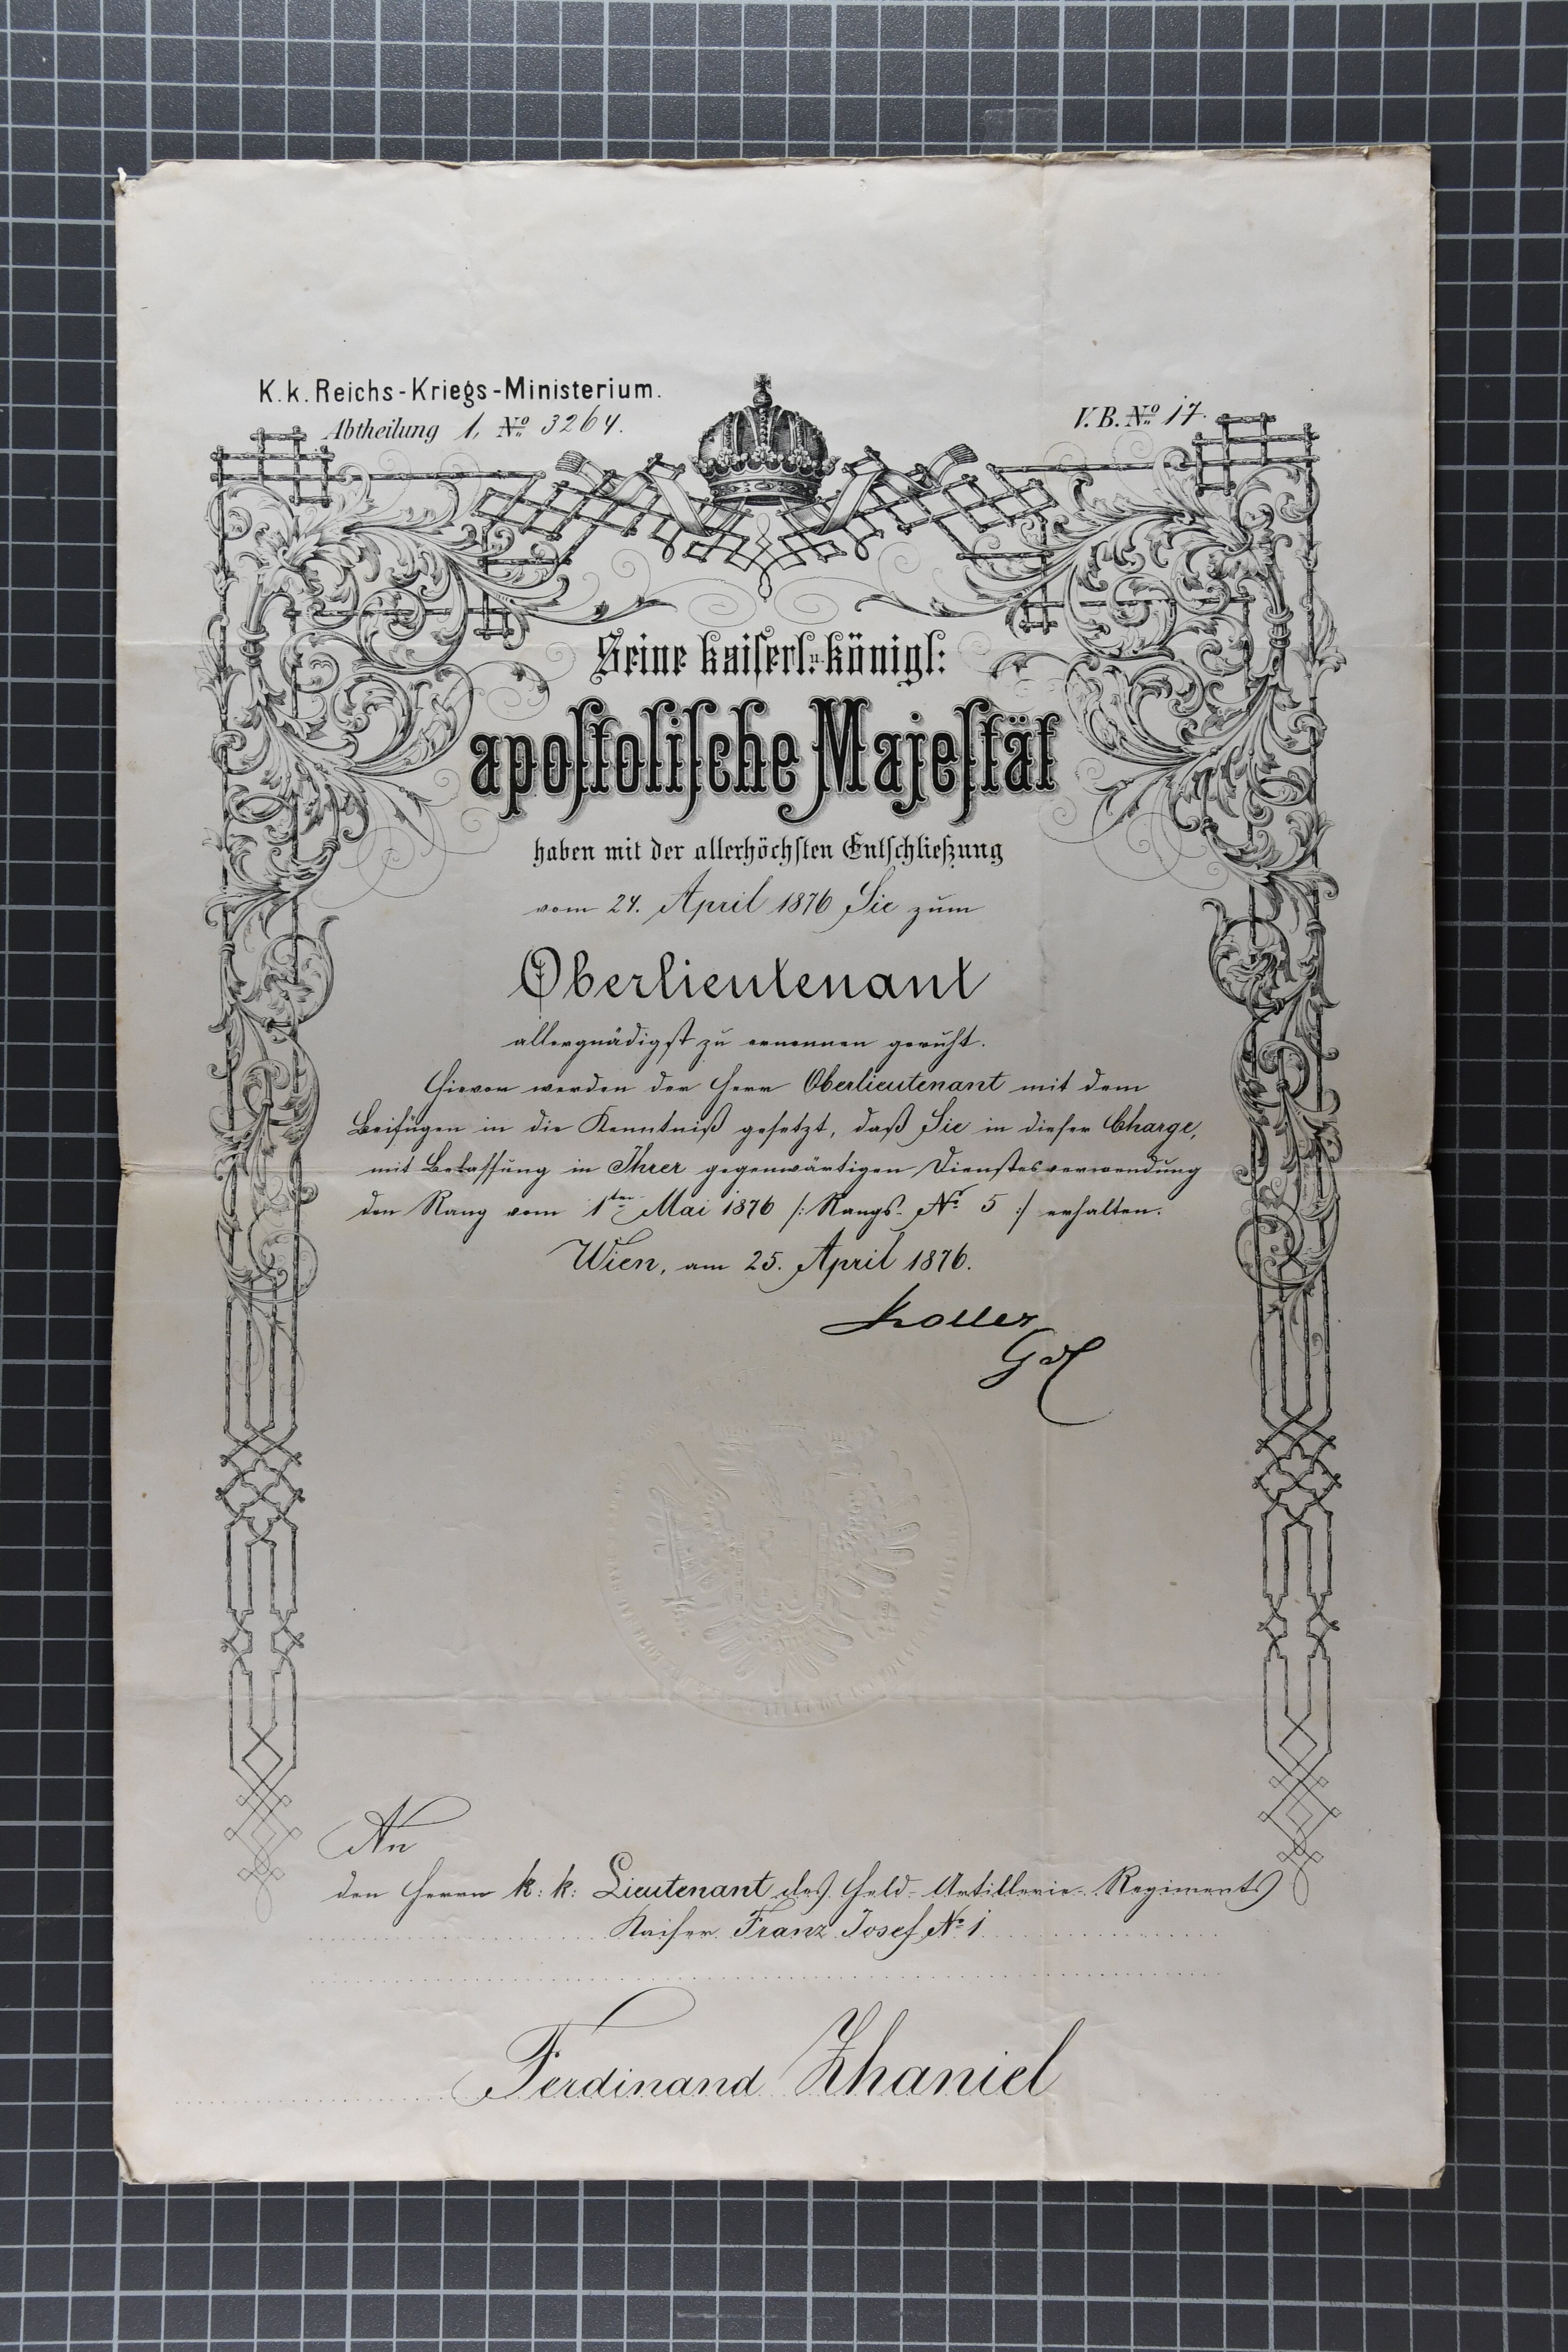 K. k. Reichs-Kriegs-Ministerium.
Abtheilung 1, No 3264.
V. B. No 17.
Seine kaiserl. u. königl:
apostolische Majestät
haben mit der allerhöchsten Entschließung
vom 24. April 1876 Sie zum
Oberlieutenant
allergnädigst zu ernennen geruht.
Hievon werden der Herr Oberlieutenant mit dem
Beifügen in die Kenntniß gesetzt, daß Sie in dieser Charge,
mit Belassung in Ihrer gegenwärtigen Dienstesverwendung
den Rang vom 1ten Mai 1876 /: Rangs- No 5 :/ erhalten.
Wien, am 25. April 1876.
Koller
GdC
An
den Herrn k: k: Lieutenant des Feld-Artillerie-Regiments
Kaiser Franz Josef No 1
Ferdinand Zhaniel